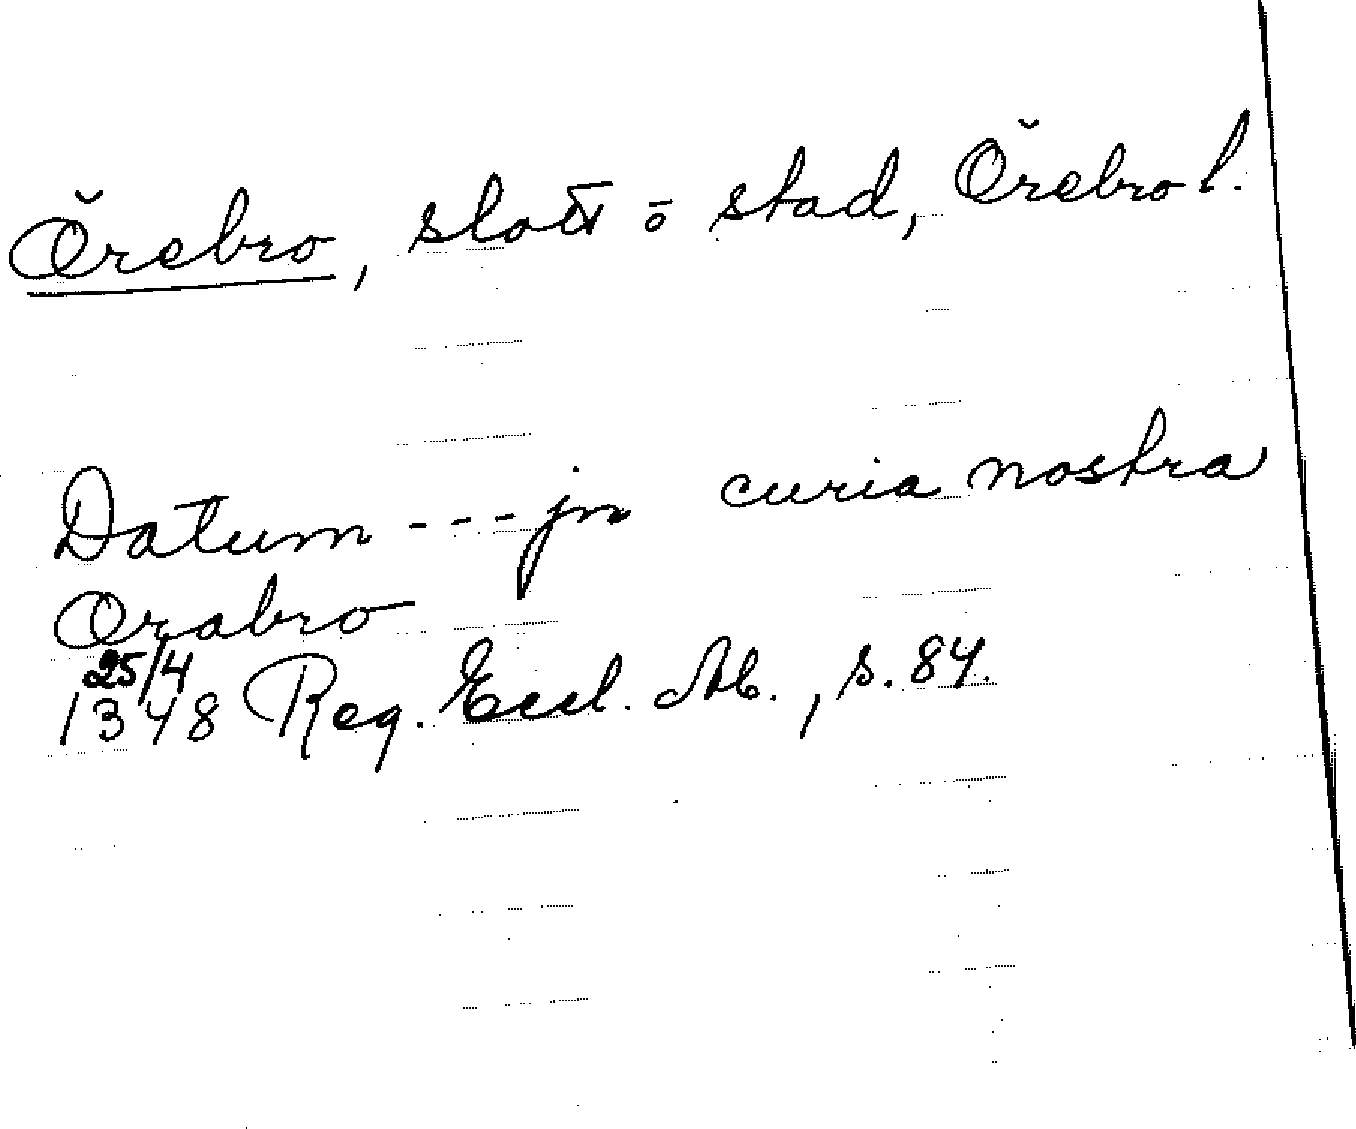 Örebro, slott o stad, Örebro l.
Datum --- jn curia nostra
Orabro
25/4
1348 Reg. Eccl. Ab., s. 84.